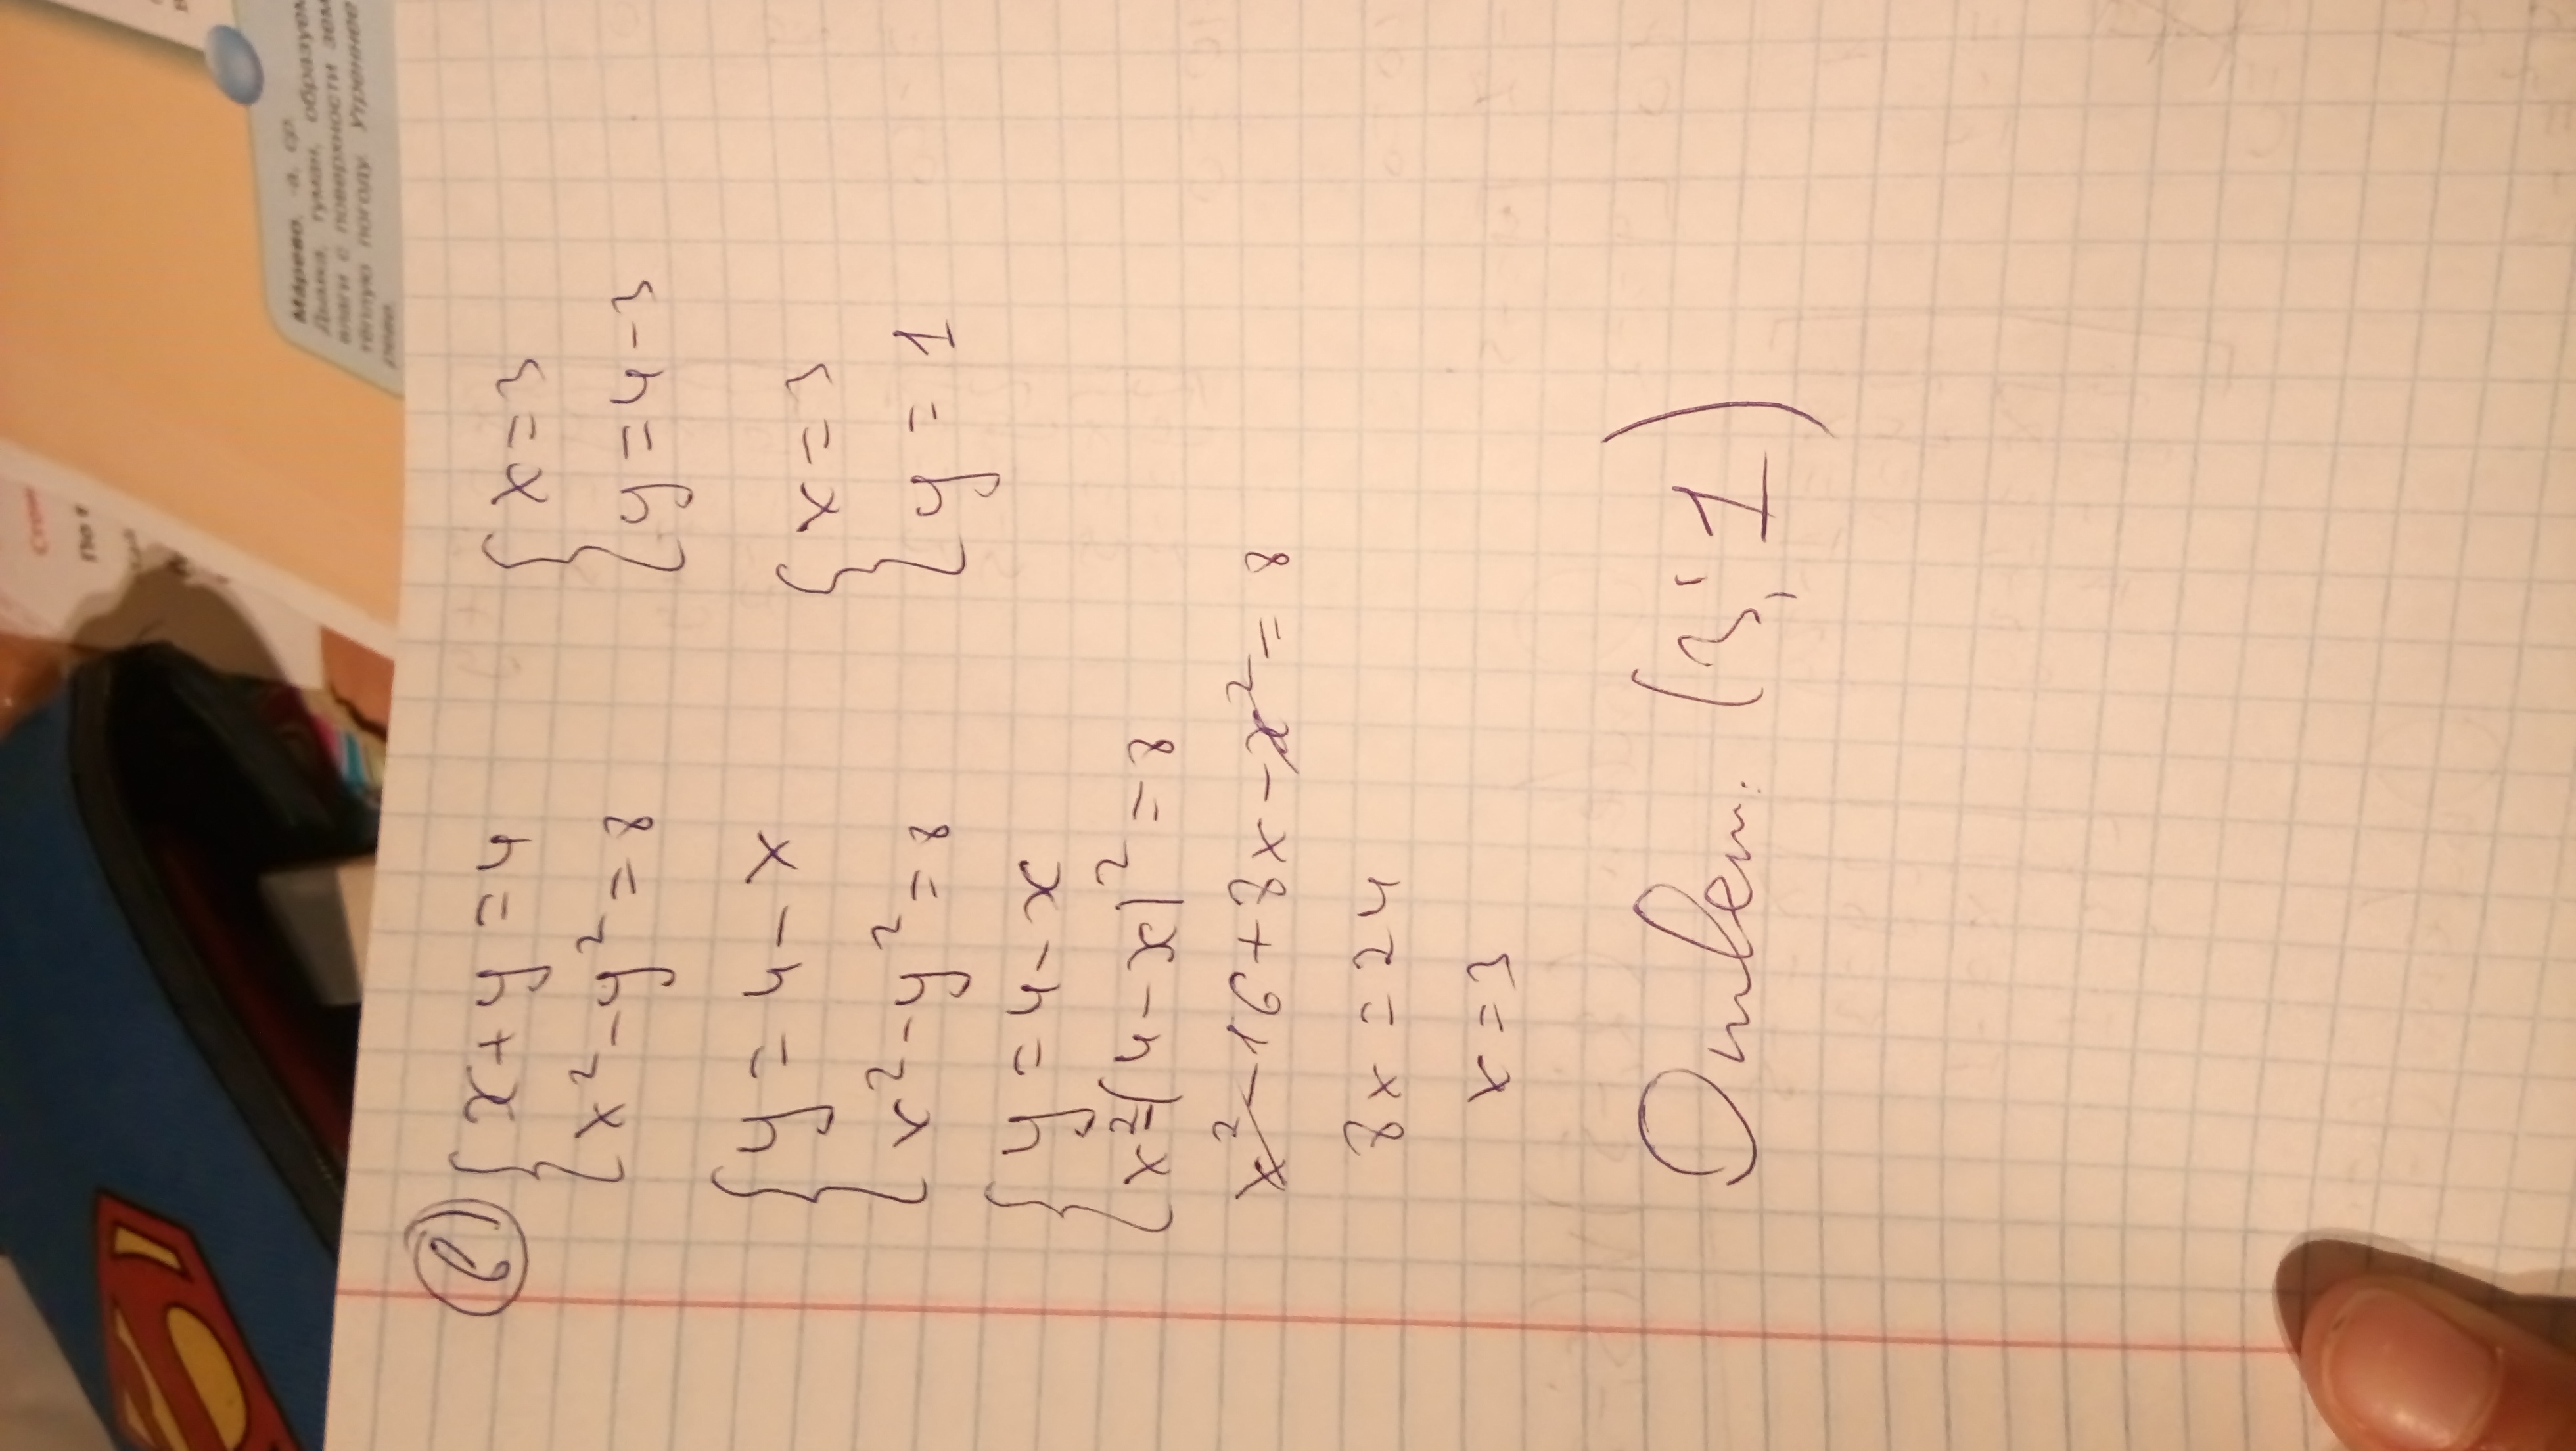 в) { x + y = 4
{ x² - y² = 8
{ y = 4 - x
{ x² - y² = 8
{ y = 4 - x
{ x² - (4 - x)² = 8
x² - 16 + 8x - x² = 8
8x = 24
x = 3
{ x = 3
{ y = 4 - 3
{ x = 3
{ y = 1
Ответ: (3; 1)
Марево, -а, ср.
Дымка, туман, образуем
влаги с поверхности зем
тёплую погоду. Утреннее
рево.
Стои
По т